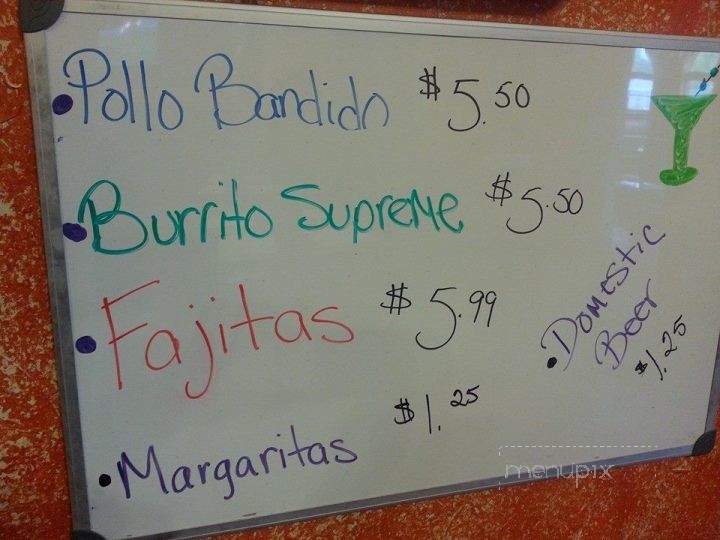 • Pollo Bandido $5.50
• Burrito Supreme $5.50
• Fajitas $5.99
• Margaritas $1.25
• Domestic
Beer
$1.25
menupix